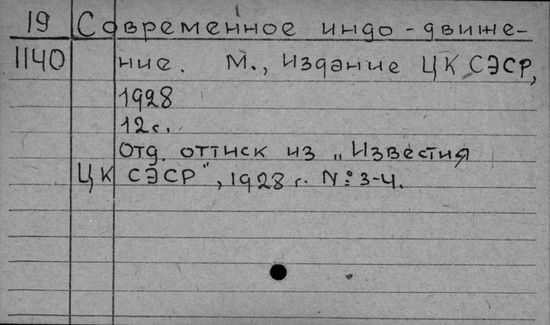 19 Современное индо-движе-
1140 ние. М., издание ЦК СЭСР,
1928
12с.
Отд. оттиск из „Известия
ЦК СЭСР", 1928 г. №3-4.